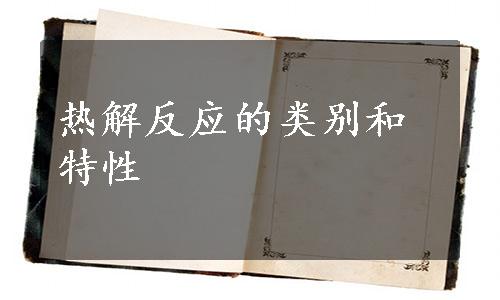 热解反应的类别和
特性